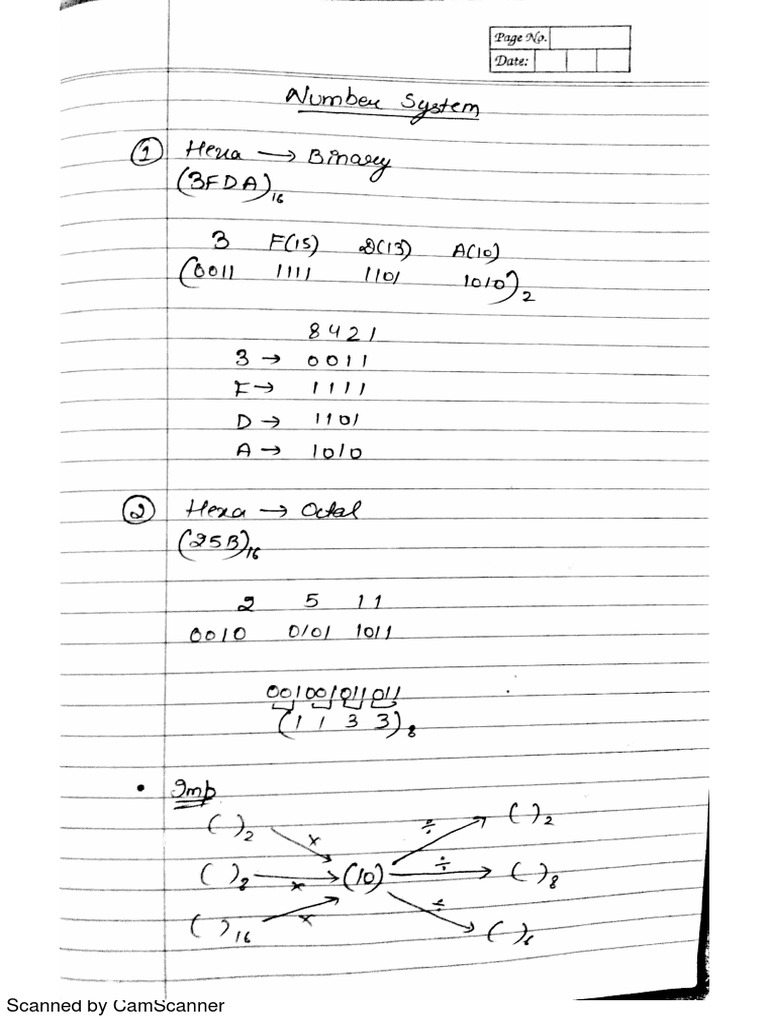 Page No.
Date:
Number System
① Hexa → Binary
(3FDA)₁₆
3 F(15) D(13) A(10)
(0011 1111 1101 1010)₂
8421
3 → 0011
F → 1111
D → 1101
A → 1010
② Hexa → Octal
(25B)₁₆
2 5 11
0010 0101 1011
001001011011
(1 1 3 3)₈
• Imp
( )₂ × ÷ ( )₂
( )₈ × (10) ÷ ( )₈
( )₁₆ × ÷ ( )₆
Scanned by CamScanner